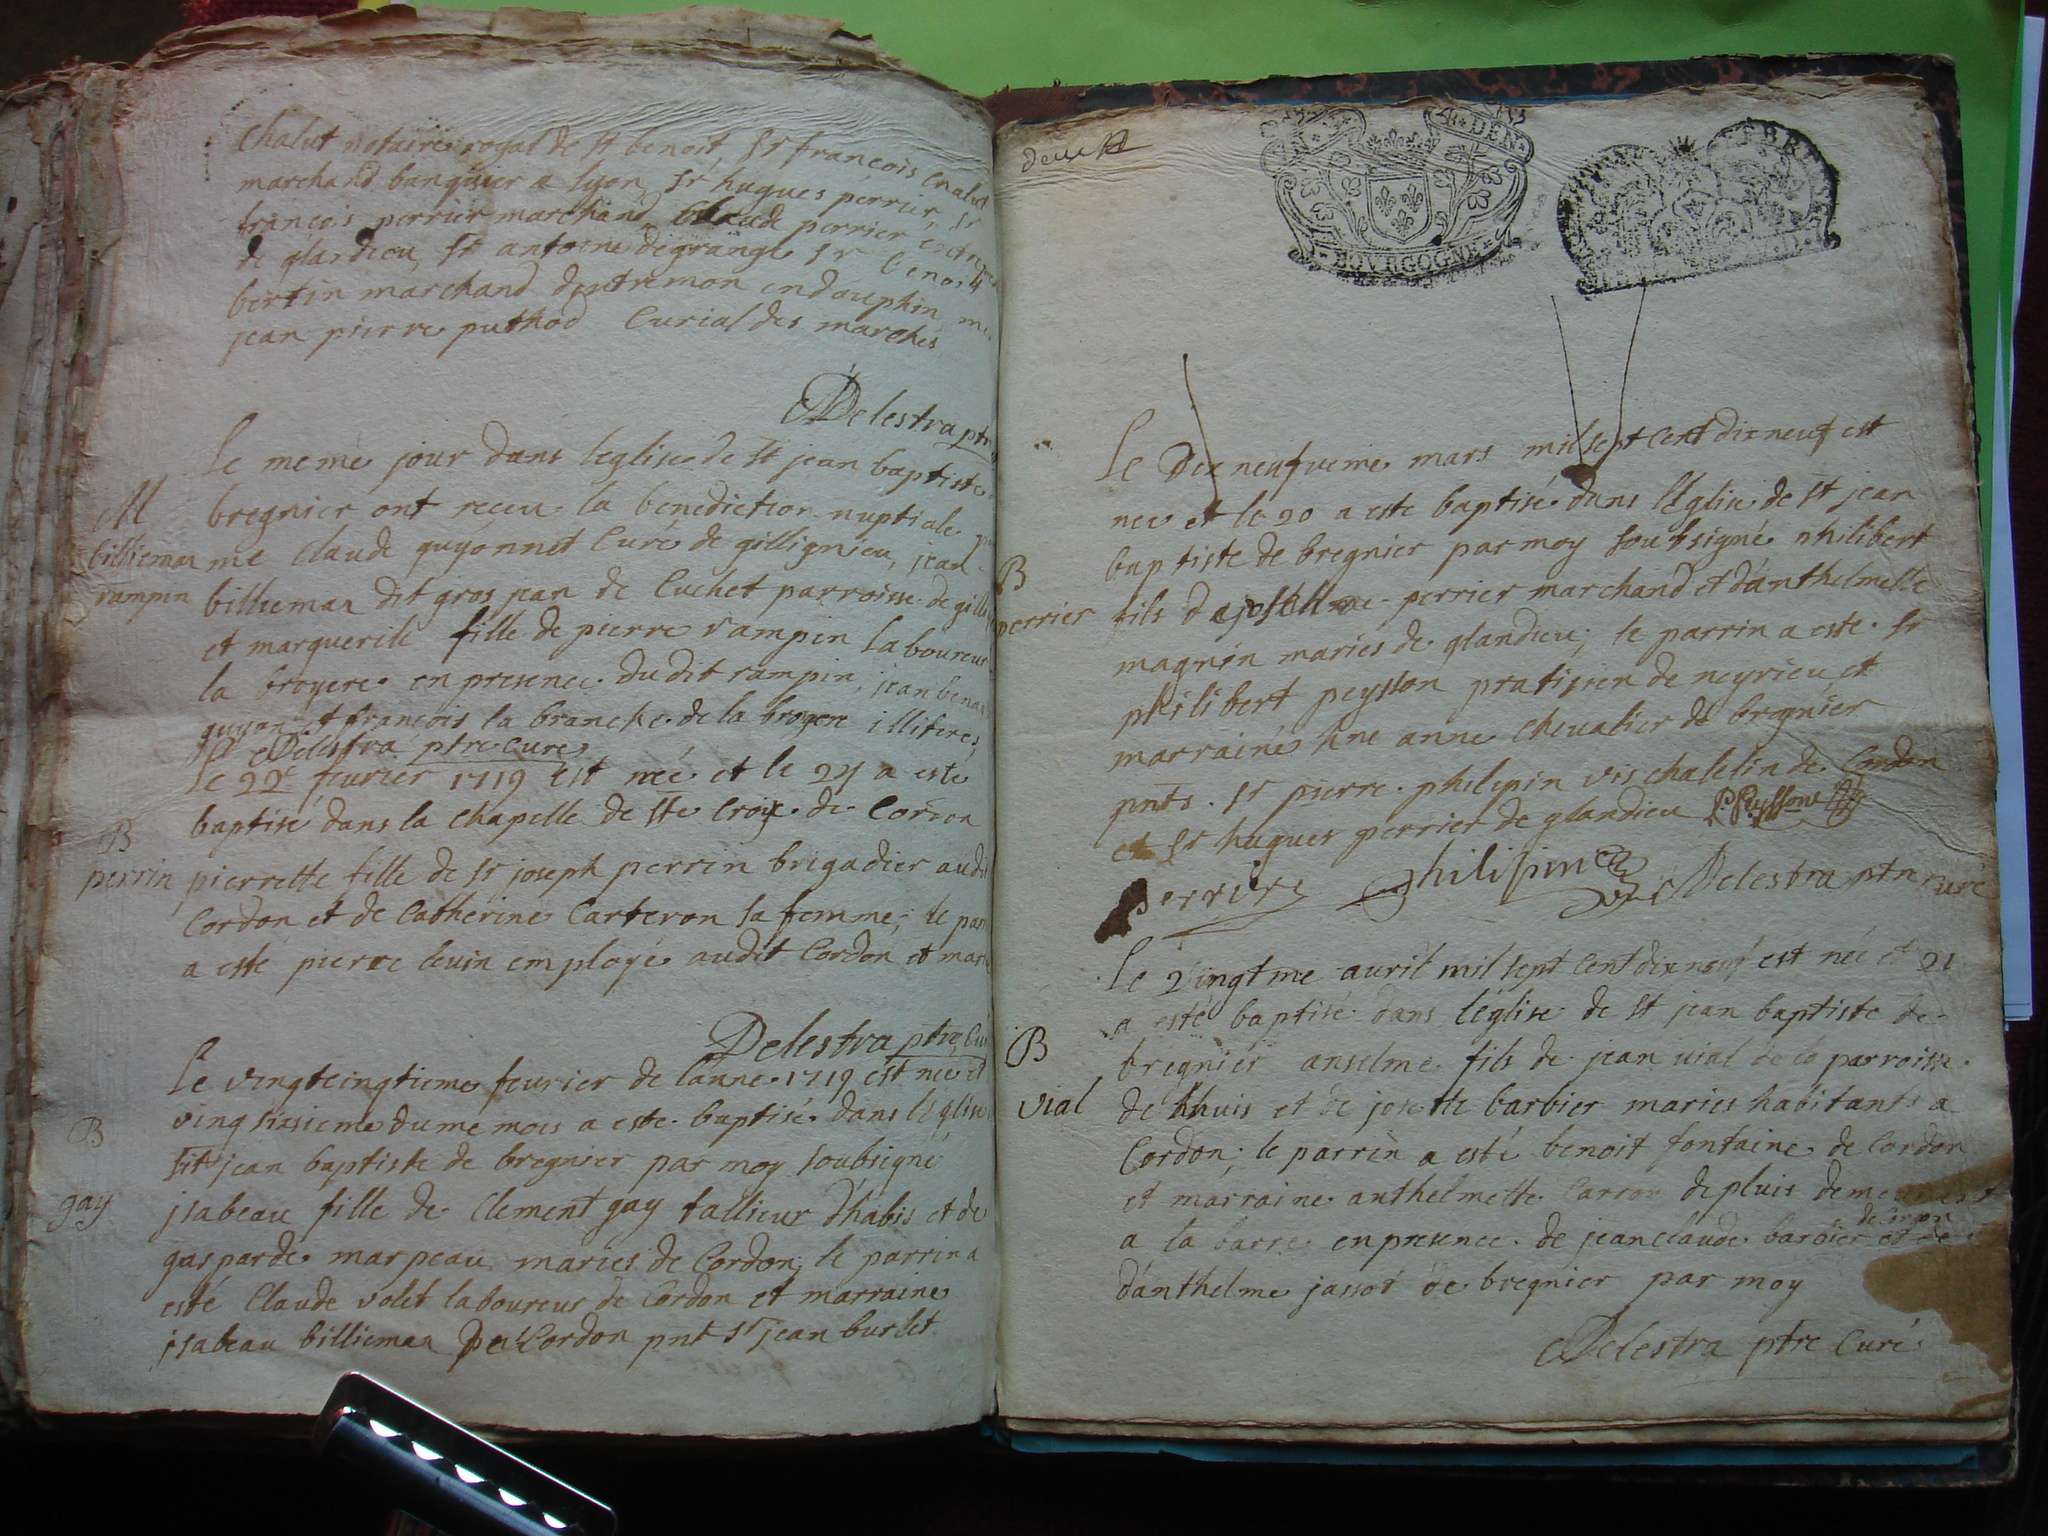 chalut notaire royal de st benoit, sr francois chalut
marchand banquier a lyon, sr hugues perrier, sr
francois perrier marchand, claude perrier
de glandieu, sr antoine degrange sr benoist
bertin marchand dentremon en dauphin me
jean pierre puthod Curial des marches
Delestra ptre
Le meme jour dans leglise de st jean baptiste
bregnier ont receu la benediction nuptiale
M
billiemaz
rampin
me Claude guyonnet Curé de gillignieu, jean
billiemaz dit gros jean de Cuchet parroisse de gilli
et marguerite fille de pierre rampin laboureur
la broyere en presence dudit rampin, jean benoi
guyonnet francois la branche de la broyere illiteres,
Delestra ptre curé
le 22e feurier 1719 est née et le 24 a esté
baptisé dans la chapelle de ste Croix de Cordon
B
perrin
pierrette fille de sr joseph perrin brigadier audit
Cordon et de Catherine Carteron sa femme; le par
a esté pierre leuin employé audit Cordon et mar
Delestra ptre Cu
Le vingtcingtieme feurier de lanne 1719 est nee et
vingsixsieme du me mois a esté baptisé dans léglise
B
gay
st jean baptiste de bregnier par moy soubsigné
jsabeau fille de Clement gay tallieur d'habis et de
gasparde marpeau maries de Cordon; le parrin a
esté Claude volet laboureur de Cordon et marraine
jsabeau billiemaz de Cordon pnt sr jean burlet
deux
GEN
DEN
BOVRGOGNE
Le Dix neufuieme mars mil sept cent dix neuf est
nee et le 20 a este baptisé dans l'Eglise de st jean
baptiste de bregnier par moy soubsigné philibert
B
perrier
fils d perrier marchand et d'anthelmette
magnin maries de glandieu; le parrin a este sr
philibert peysson pratissien de neyrieu et
marraine hne anne cheualier de bregnier
pnts. sr pierre philipin vischatelin de Cordon
et sr hugues perrier de glandieu P. Peysson
perrier Philipin Delestra ptre curé
Le Vingtme auril mil sept cent dix neuf est née et 21
a esté baptisé dans léglise de st jean baptiste de
B
vial
bregnier anselme fils de jean vial de la parroisse
de lhuis et de josette barbier maries habitants a
Cordon; le parrin a esté benoit fontaine de Cordon
et marraine anthelmette Carron depluis demeurant
a la barre en presence de jeanclaude barbier et de
d'anthelme jassod de bregnier par moy
Delestra ptre Curé